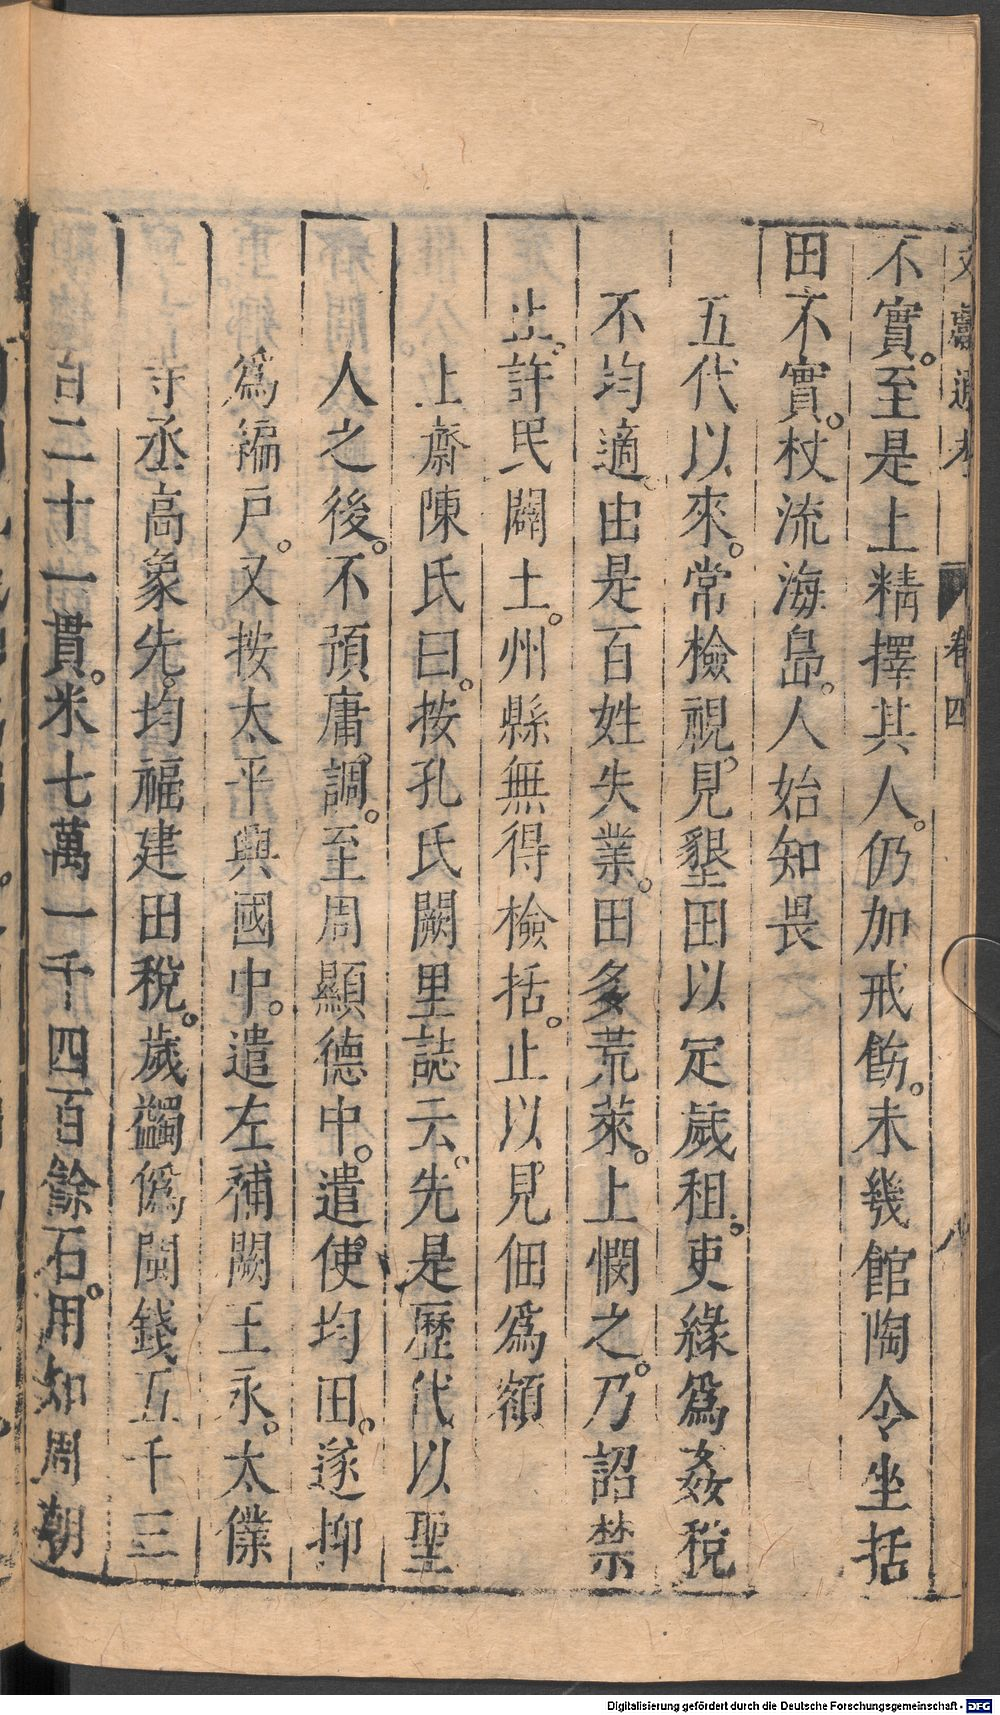 文獻通考 卷四 八
不實。至是上精擇其人。仍加戒飭。未幾館陶令坐括
田不實。杖流海島。人始知畏
五代以來。常檢視。見墾田以定歲租。吏緣爲姦稅
不均適。由是百姓失業。田多荒萊。上憫之。乃詔禁
止。許民闢土。州縣無得檢括。止以見佃爲額
上齋陳氏曰。按孔氏闕里誌云。先是歷代以聖
人之後。不預庸調。至周顯德中。遣使均田。遂抑
爲編戶。又按太平興國中。遣左補闕王永。太僕
寺丞高象先。均福建田稅。歲蠲僞閩錢五千三
百二十一貫。米七萬一千四百餘石。用知周朝
Digitalisierung gefördert durch die Deutsche Forschungsgemeinschaft - DFG